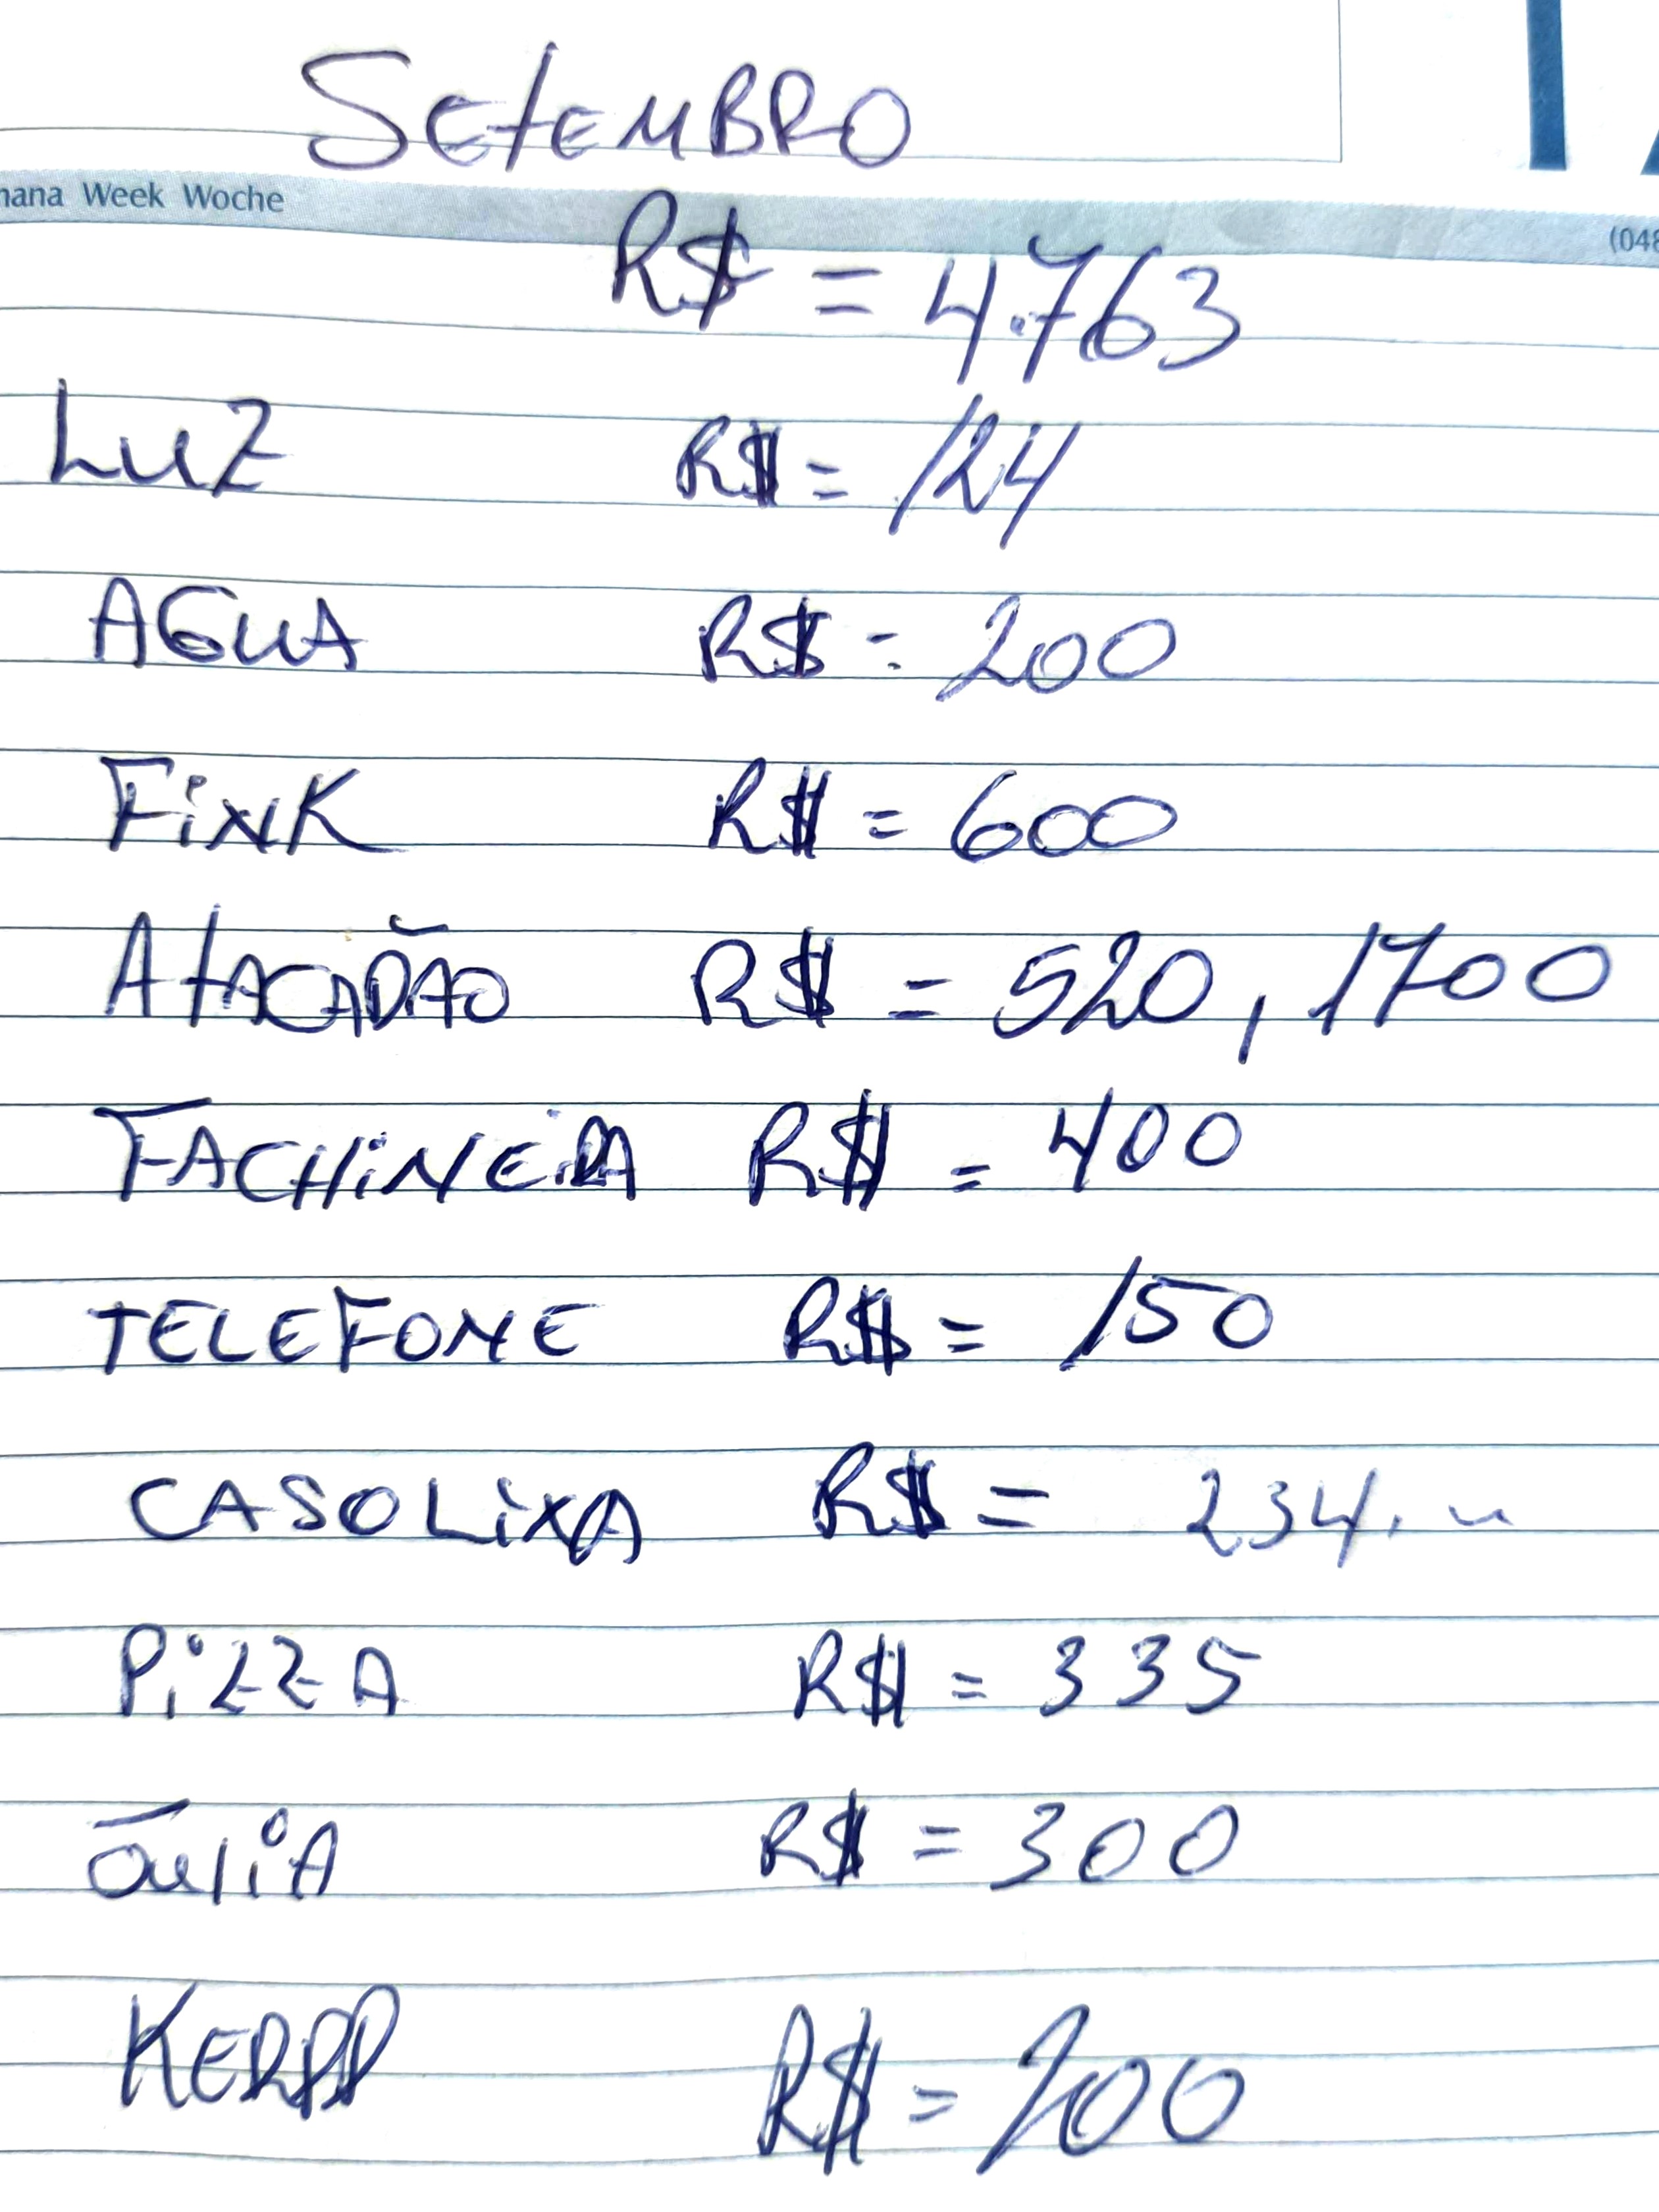 SETEMBRO
Week Woche
(048
R$ = 4.763
LUZ R$ = 124
AGUA R$ = 200
FINK R$ = 600
ATACADÃO R$ = 520, 1700
FACHINEIRA R$ = 400
TELEFONE R$ = 150
CASOLIXA R$ = 234,
PIZZA R$ = 335
JULIA R$ = 300
R$ = 200